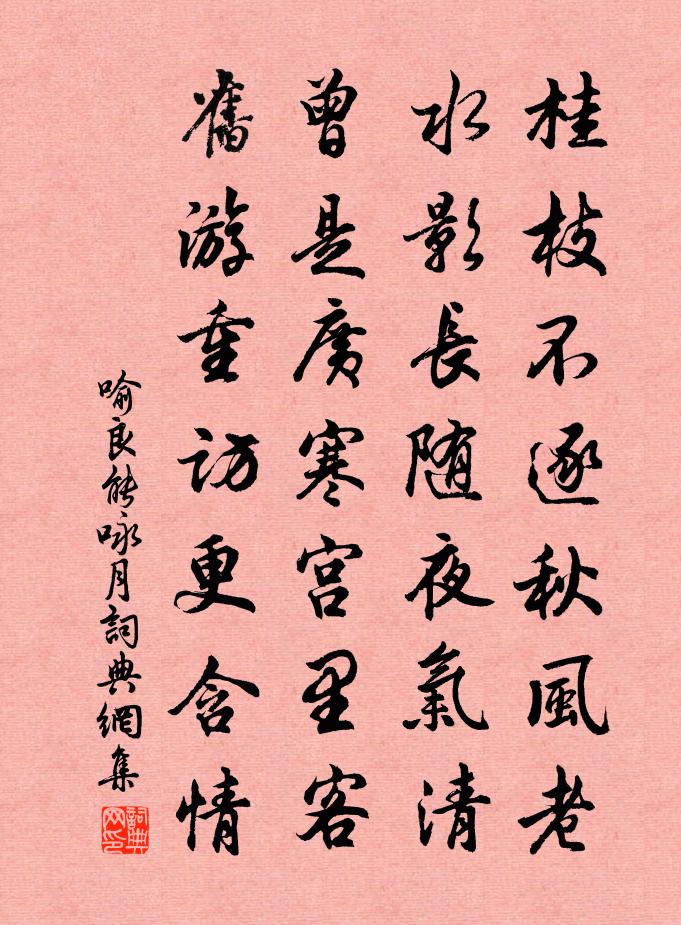 桂枝不逐秋風老
水影長随夜氣清
曾是廣寒宫里客
舊游重訪更含情
喻良能咏月詞典網集
詞典网印